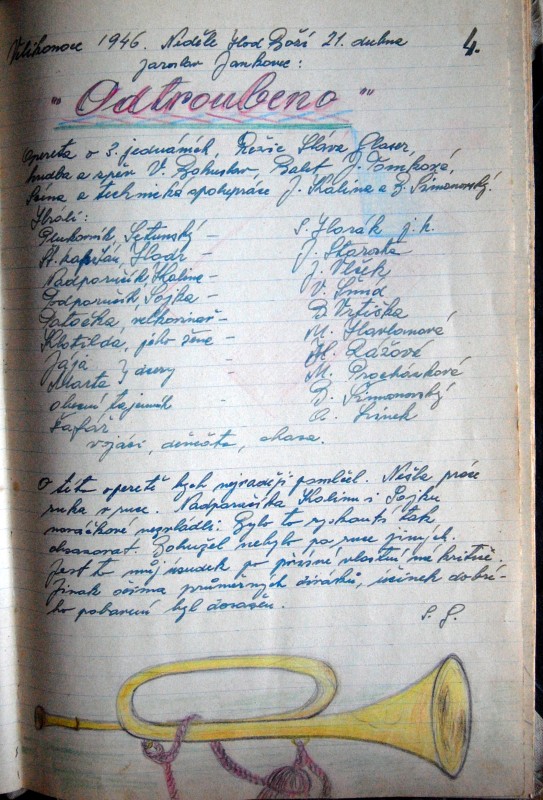 Velikonoce 1946. Neděle Hod Boží 21. dubna 4.
Jaroslav Jankovec:
"Odtroubeno"
Opereta o 3. jednáních. Režie Sláva Glaser,
hudba a zpěv V. Bohuslav, Balet J. Tomková,
Scéna a technická spolupráce J. Kalina a B. Šimonovský.
Hráli:
Plukovník, Seturnský - S. Horák j. h.
Št. kapitán, Hodr - J. Starosta
Nadporučík, Kalina - J. Vlsek
Podporučík Sojka - V. Šmíd
Patočka, velkovinař - B. Vrtiška
Klotilda, jeho žena - M. Havlonová
Jája M. Rážová
Marta } dcery - M. Procházková
obecní tajemník - B. Šimonovský
Šafář A. Linek
vojáci, děvčata, chasa.
O této operetě bych nejraději pomlčel. Nešla práce
ruka v ruce. Nadporučíka Kalinu i Sojku
nováčkové nezvládli. Bylo to riskantní tak
obsazovat. Bohužel nebylo po ruce jiných.
Jest to můj úsudek po přísné vlastní mé kritice.
Jinak očima průměrných diváků, účinek dobré-
ho pobavení byl dosažen.
S. G.